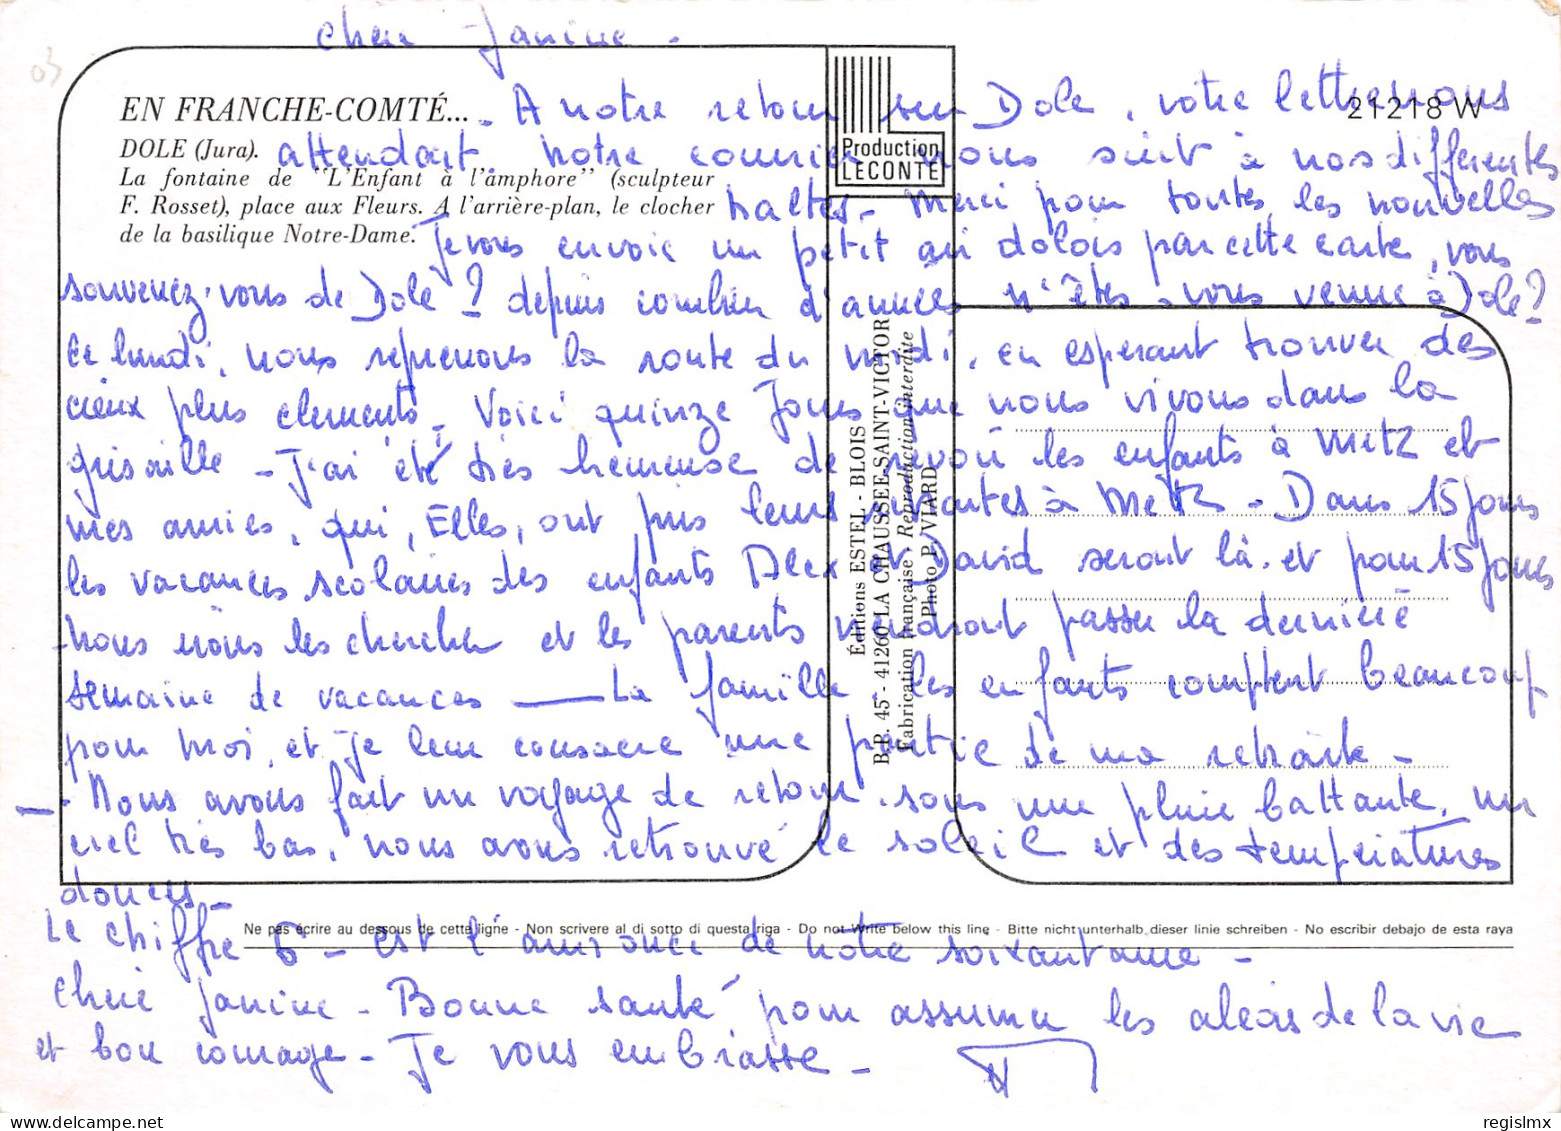 03
Chère Janine -
EN FRANCHE-COMTÉ...
- A notre retour sur Dole, votre lettre nous
21218 W
DOLE (Jura).
attendait, notre courrier nous suit à nos différentes
La fontaine de "L'Enfant à l'amphore" (sculpteur
F. Rosset), place aux Fleurs. A l'arrière-plan, le clocher
haltes - Merci pour toutes les nouvelles
de la basilique Notre-Dame.
Je vous envoie un petit air dolois par cette carte, vous
souvenez-vous de Dole ? depuis combien d'années n'êtes-vous venue à Dole ?
Ce lundi, nous reprenons la route du midi, en espérant trouver des
cieux plus cléments - Voici quinze jours que nous vivons dans la
grisaille - J'ai été très heureuse de revoir les enfants à Metz et
mes amies, qui, Elles, ont pris leurs à Metz - Dans 15 jours
les vacances scolaires des enfants Alex et David seront là, et pour 15 jours
- nous irons les chercher et les parents viendront passer la dernière
semaine de vacances — La famille, les enfants comptent beaucoup
pour moi, et je leur consacre une partie de ma retraite -
- Nous avons fait un voyage de retour, sous une pluie battante, un
ciel très bas, nous avons retrouvé le soleil et des températures
douces -
Le chiffre 6 - est l'annonce de notre soixantaine -
Chère Janine - Bonne santé pour assumer les aléas de la vie
et bon courage - Je vous embrasse -
Production
LECONTE
Éditions ESTEL - BLOIS
B.P. 45 - 41260 LA CHAUSSÉE-SAINT-VICTOR
Fabrication française. Reproduction interdite
Photo P. VIARD
Ne pas écrire au dessous de cette ligne - Non scrivere al di sotto di questa riga - Do not Write below this line - Bitte nicht unterhalb dieser linie schreiben - No escribir debajo de esta raya
regislmx